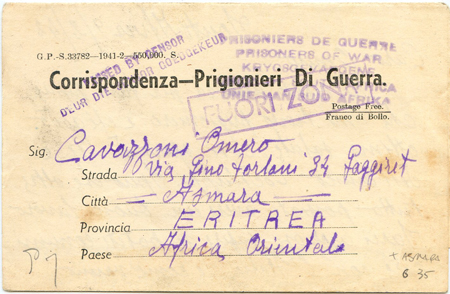 G.P.-S.33782—1941-2—550,000. S.
PASSED BY CENSOR
DEUR DIE SENSOR GOEDGEKEUR
PRISONIERS DE GUERRE
PRISONERS OF WAR
Corrispondenza—Prigionieri Di Guerra.
FUORI ZONA
Postage Free.
Franco di Bollo.
Sig. Cavazzoni Omero
Strada Via Pino 34
Città — Asmara —
Provincia ERITREA
Paese Africa Orientale
ASMARA
6 35